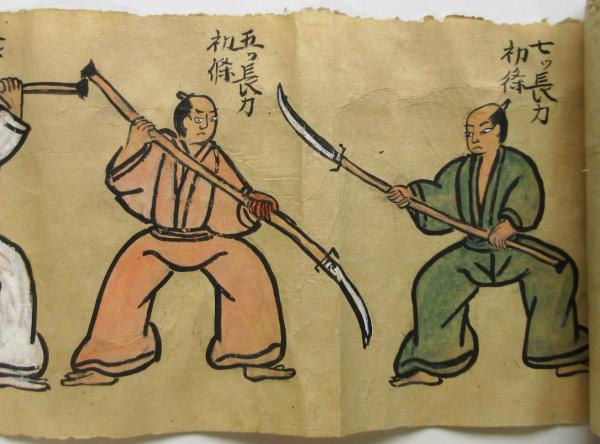 七ツ長刀
初條
五ツ長刀
初條